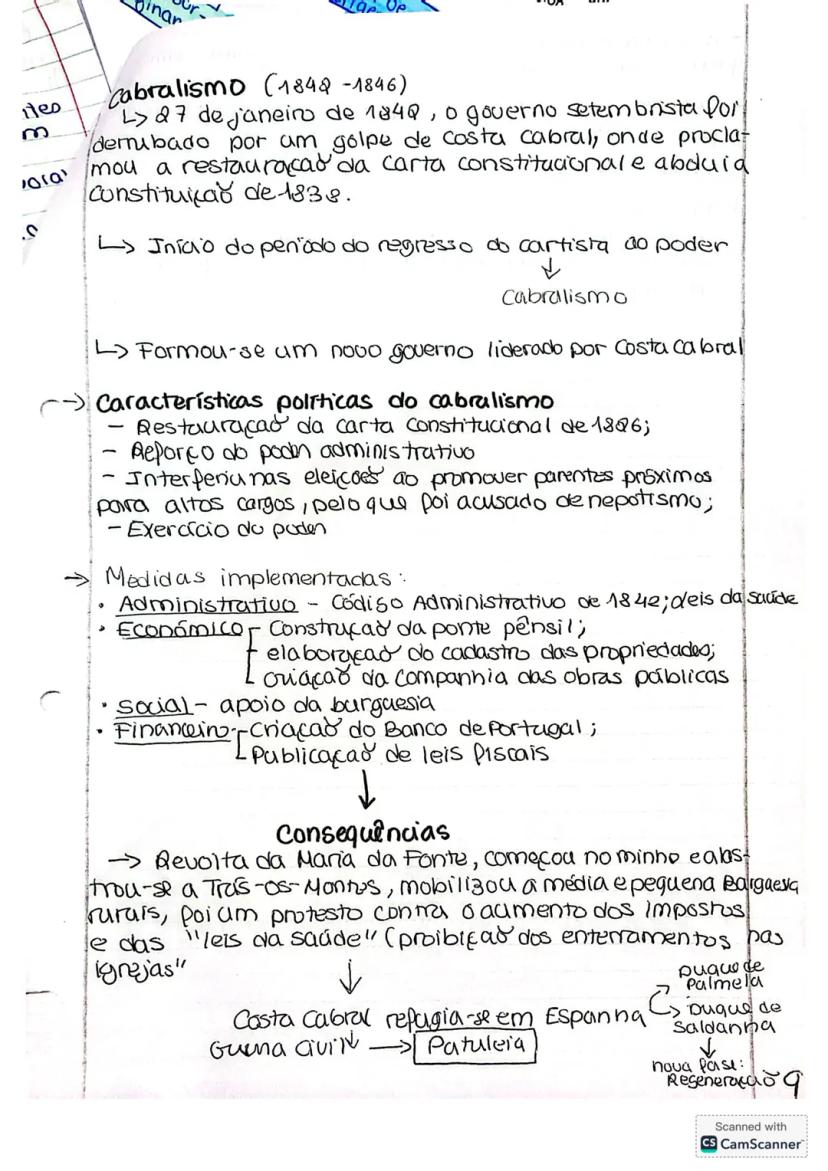 Cabralismo (1842 -1846)
↳ 27 de janeiro de 1842, o governo setembrista foi
derrubado por um golpe de Costa Cabral, onde procla-
mou a restauração da Carta Constitucional e aboluia
Constituição de 1838.
↳ Início do período do regresso do cartista ao poder
↓
Cabralismo
↳ Formou-se um novo governo liderado por Costa Cabral
→ Características políticas do cabralismo
- Restauração da Carta Constitucional de 1826;
- Reforço do poder administrativo
- Interferiu nas eleições ao promover parentes próximos
para altos cargos, pelo que foi acusado de nepotismo;
- Exercício do poder
→ Medidas implementadas:
• Administrativo - Código Administrativo de 1842; leis da saúde
• Económico - Construção da ponte pênsil;
elaboração do cadastro das propriedades;
criação da Companhia das obras públicas
• Social - apoio da burguesia
• Financeiro - Criação do Banco de Portugal;
Publicação de leis fiscais
↓
Consequências
→ Revolta da Maria da Fonte, começou no minho e alas-
trou-se a Trás-os-Montes, mobilizou a média e pequena Burguesia
rurais, foi um protesto contra o aumento dos impostos
e das "leis da saúde" (proibição dos enterramentos nas
igrejas"
↓
Costa Cabral refugia-se em Espanha
Duque de
Palmela
Duque de
Saldanha
↓
nova fase:
Regeneração
Guerra Civil → Patuleia
9
Scanned with
CS CamScanner